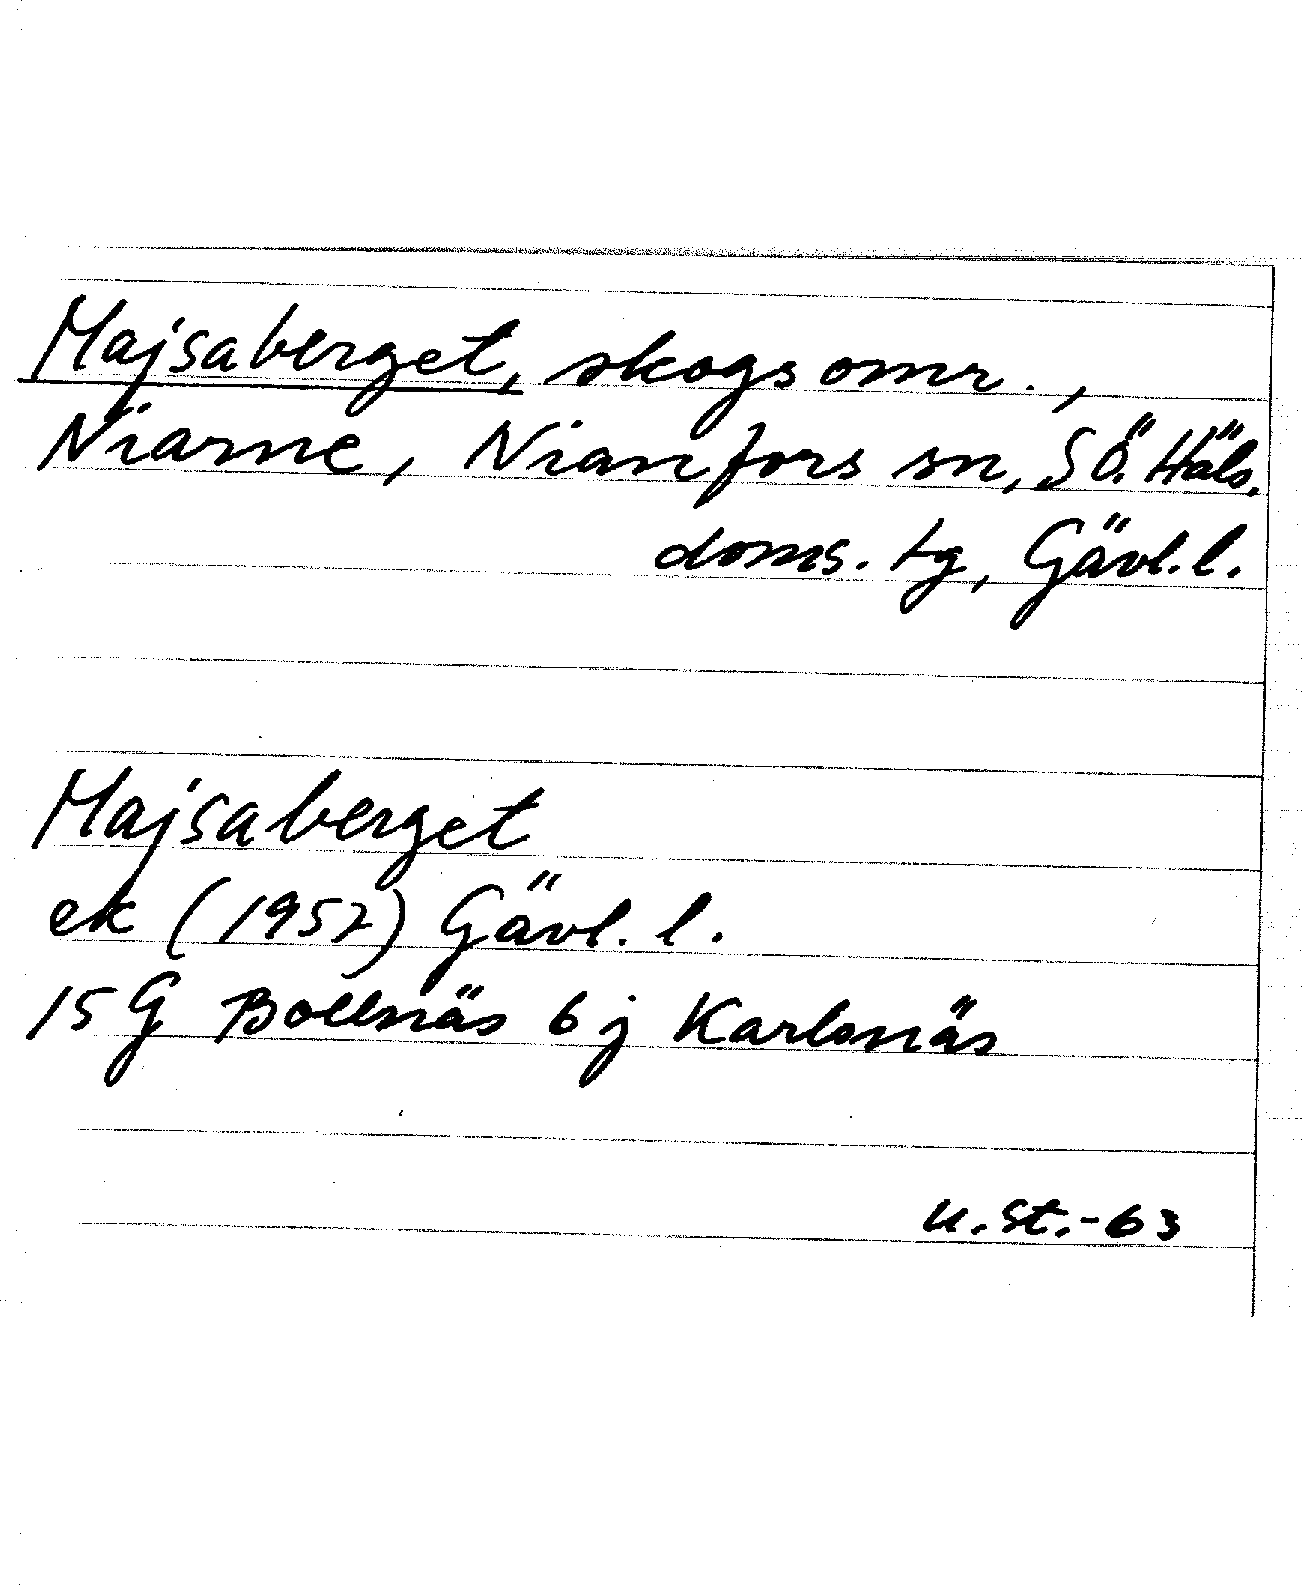 Majsaberget, skogsomr.,
Niarne, Nianfors sn, SÖ. Häls.
doms. tg, Gävl. l.
Majsaberget
ek (1957) Gävl. l.
15 G Bollnäs 6 j Karlsnäs
U. St.-63